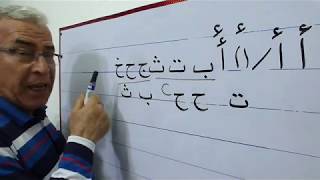 أ أ / (ا) أ ب ت ث ج ح خ
ت ح ج ب ث